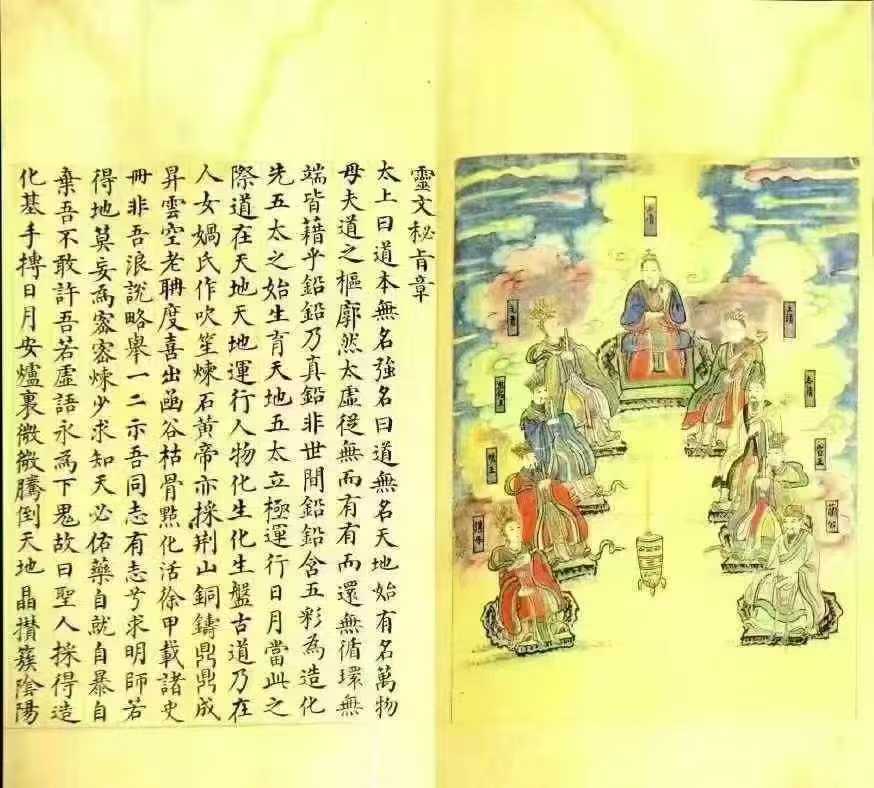 蘭公
靈文秘旨章
太上曰道本無名強名曰道無名天地始有名萬物
母夫道之樞廓然太虛從無而有有而還無循環無
端皆藉乎鉛鉛乃真鉛非世間鉛鉛含五彩為造化
先五太之始生育天地五太立極運行日月當此之
際道在天地天地運行人物化生化生盤古道乃在
人女媧氏作吹笙煉石黃帝亦採荆山銅鑄鼎鼎成
昇雲空老聃度喜出函谷枯骨點化活徐甲載諸史
冊非吾浪說略舉一二示吾同志有志兮求明師若
得地莫妄為密密煉少求知天必佑藥自就自暴自
棄吾不敢許吾若虛語永為下鬼故曰聖人採得造
化基手摶日月安爐裏微微騰倒天地晶攢簇陰陽